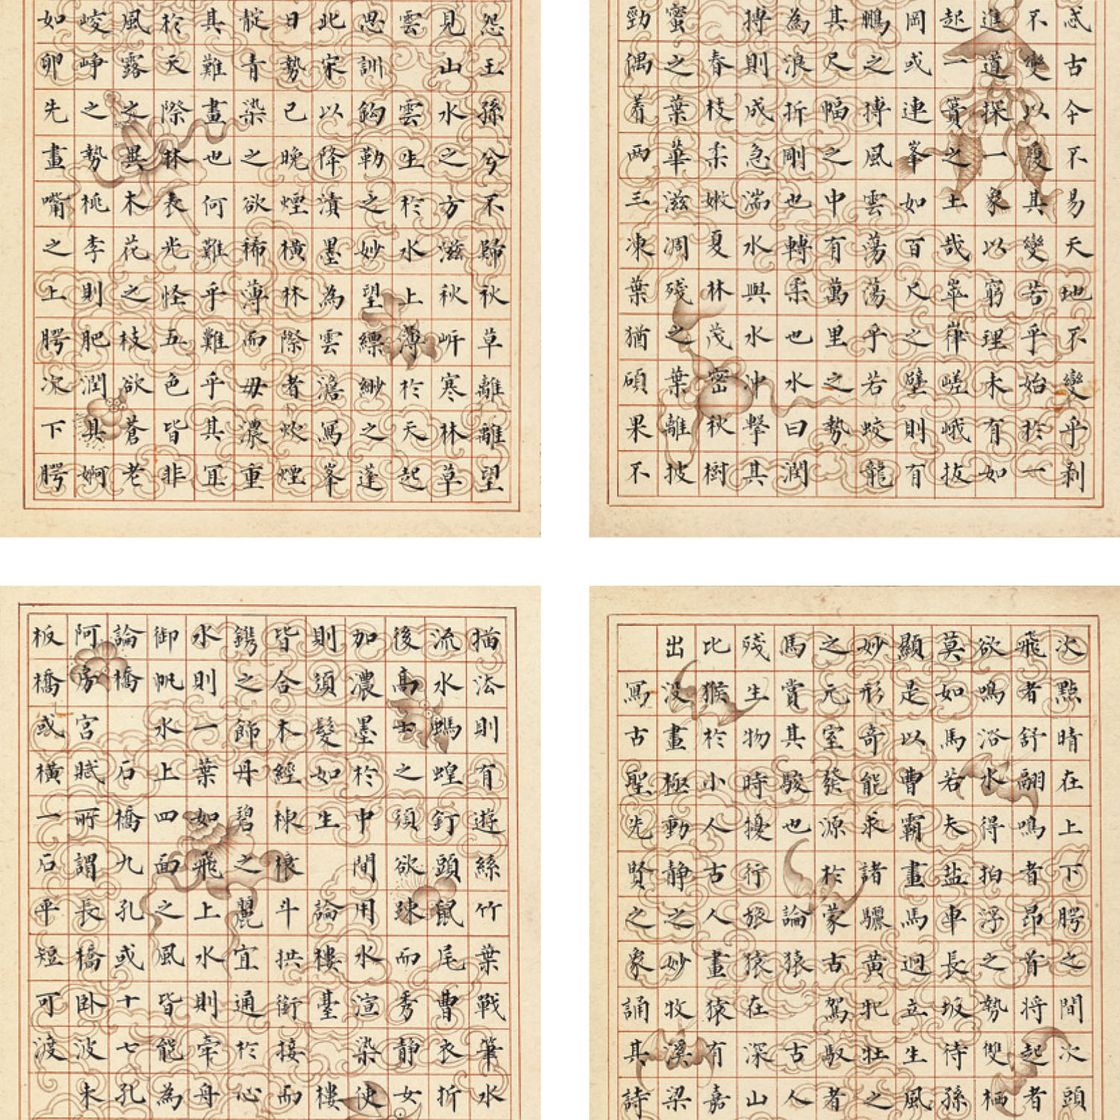 忒古今不易天地不變乎剥
不變以變其變若乎始於一
進道探一象以窮理木有如
起一簣之土哉崒嵂嵯峨拔
岡或連峯如百尺之壁則有
鵬之搏風雲蕩蕩乎若蛟龍
其尺幅之中有萬里之勢
為浪折剛也轉柔也水曰潤
搏則成急湍水與水沖擊其
春枝柔嫩夏林茂密秋樹
蜜之葉華滋凋殘之葉離披
勁偶着兩三凍葉猶碩果不
怨王孫兮不歸秋草離離望
見山水之方滋秋㟁寒林草
雲雲生於水上薄於天起
思訓鈎勒之妙望縹緲之蓬
此宋以降漬墨為雲澹寫峯
日勢已晚煙橫林際者炊煙
靛青染之欲稀薄而毋濃重
其難畫也何難乎難乎其㝠
於天際林表光怪五色皆非
風露之異木花之枝欲蒼老
崚崢之勢桃李則肥潤具婀
如卵先畫嘴之上腭次下腭
次點睛在上下腭之間次頭
飛者舒翩鳴者昂首將起者
欲鳴浴水得拍浮之勢雙栖
莫如馬若夫盐車長坂待孫
顯是以曹霸畫馬迥立生風
妙形奇能求諸驪黃牝牡之
之元室發源於蒙古駕馭者
馬賞其駿也 論猿 古人
殘生物時擾行旅猿在深山
比猴於小人古人畫猿有嘉
出波畫極動靜之妙牧溪梁
寫古聖先賢之象誦其詩
描法則有遊絲竹葉戰筆水
流水螞蝗釘頭鼠尾曹衣折
後高士之須欲疎而秀靜女
加濃墨於中間用水渲染使
則須髮如生 論樓臺 樓
皆合木經棟榱斗拱銜接而
鐫之飾丹碧之麗宜通於心
水則一葉如飛上水則牽舟
御帆水上四面之風皆能為
論橋 石橋九孔或十七孔
阿房宮賦所謂長橋卧波 未
板橋或橫一石平短可渡